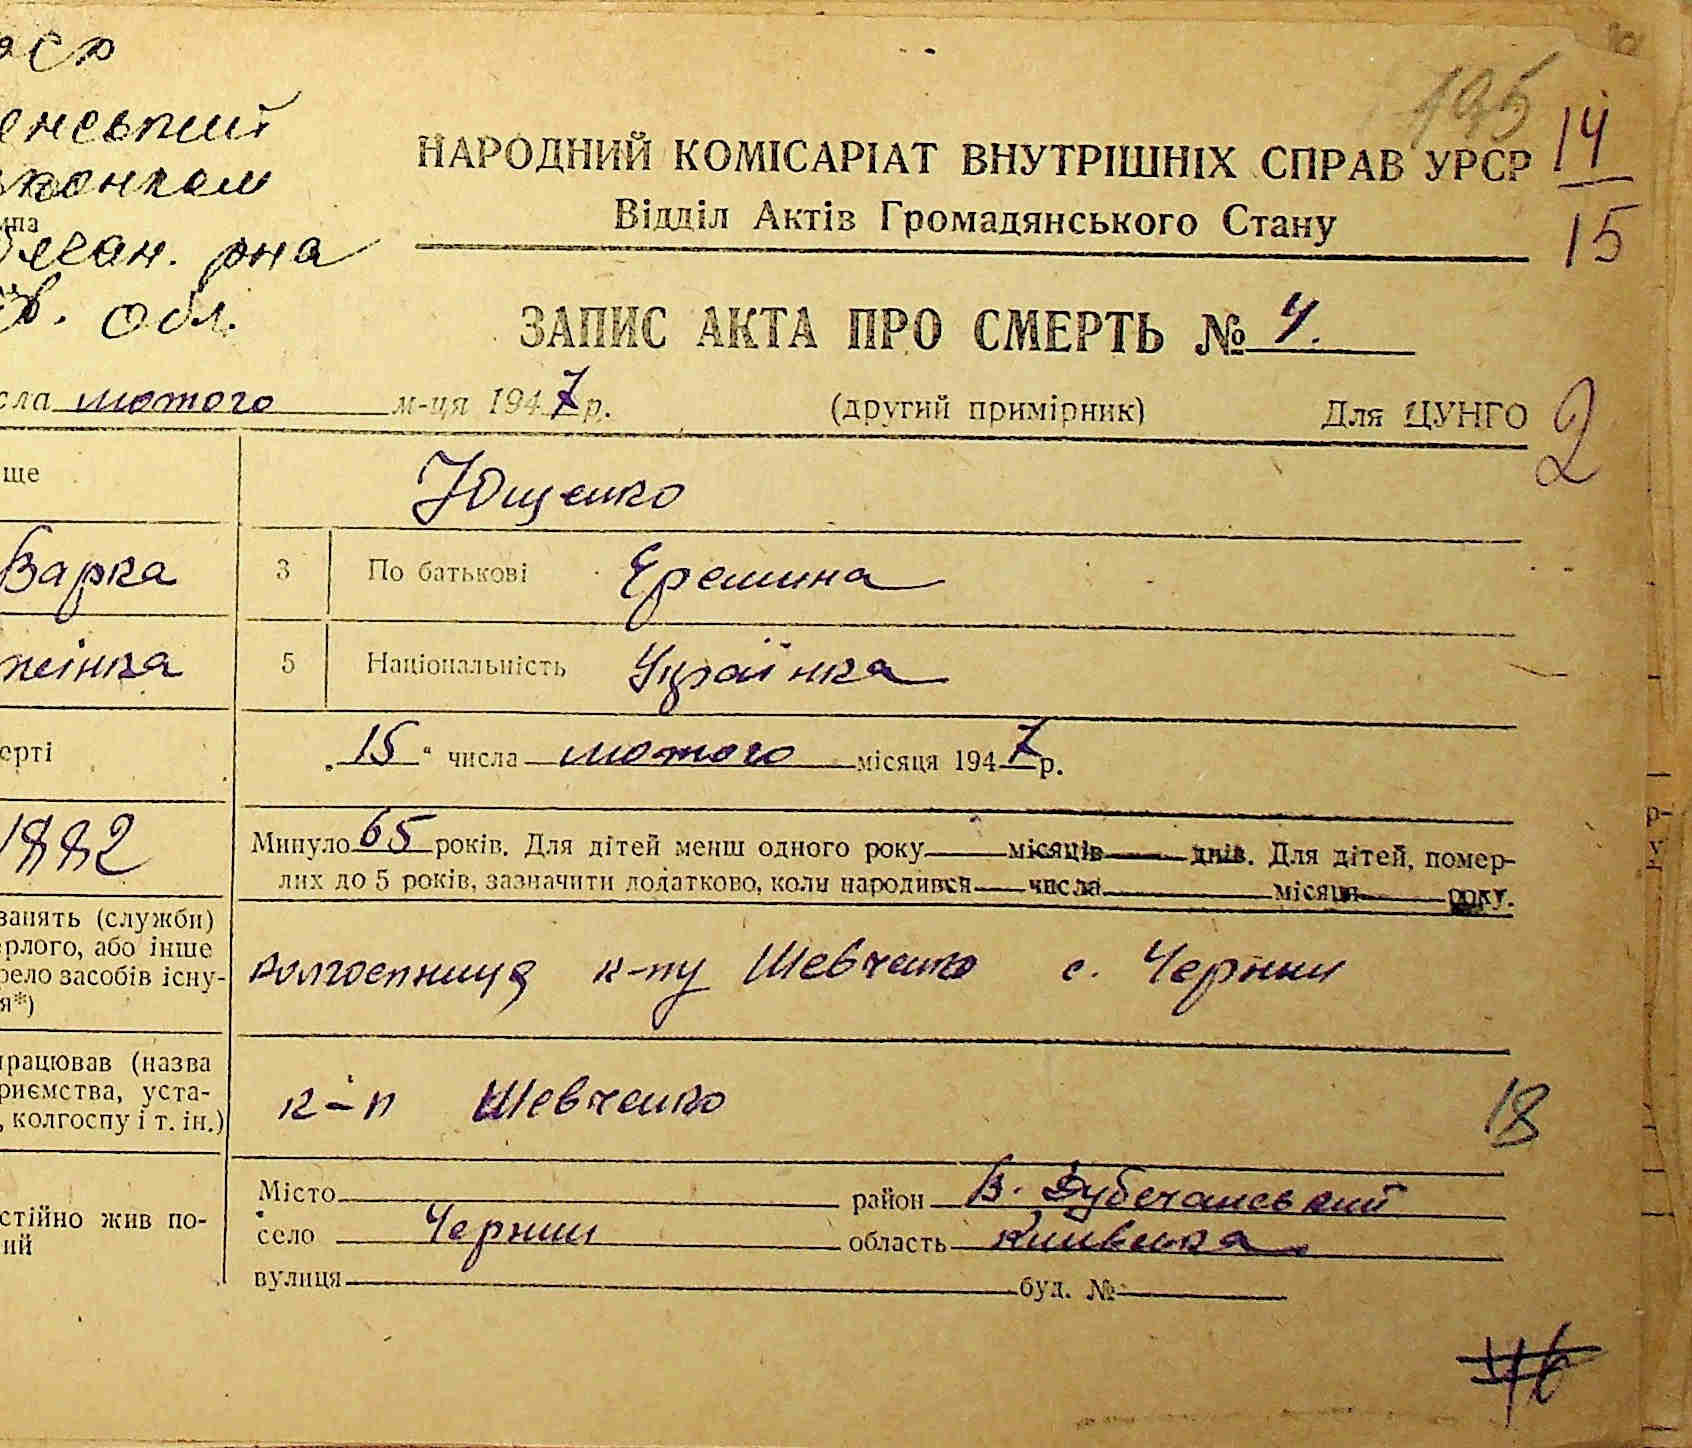 195
14
15
НАРОДНИЙ КОМІСАРІАТ ВНУТРІШНІХ СПРАВ УРСР
Відділ Актів Громадянського Стану
рна
обл.
ЗАПИС АКТА ПРО СМЕРТЬ № 4.
сла лютого м-ця 1947 р. (другий примірник) Для ЦУНГО
2
ще Ющенко
Варка 3 По батькові Еремина
жінка 5 Національність Українка
ерті „15“ числа лютого місяця 1947 р.
1882 Минуло 65 років. Для дітей менш одного року місяців днів. Для дітей, помер-
лих до 5 років, зазначити додатково, коли народився числа місяця року.
занять (служби)
ерлого, або інше
рело засобів існу-
я*)
к-пу Шевченко с. Чернин
працював (назва
риємства, уста-
, колгоспу і т. ін.)
к-п Шевченко
18
стійно жив по-
ий
Місто район В. Дубечанський
село Чернин область Київська
вулиця буд. №